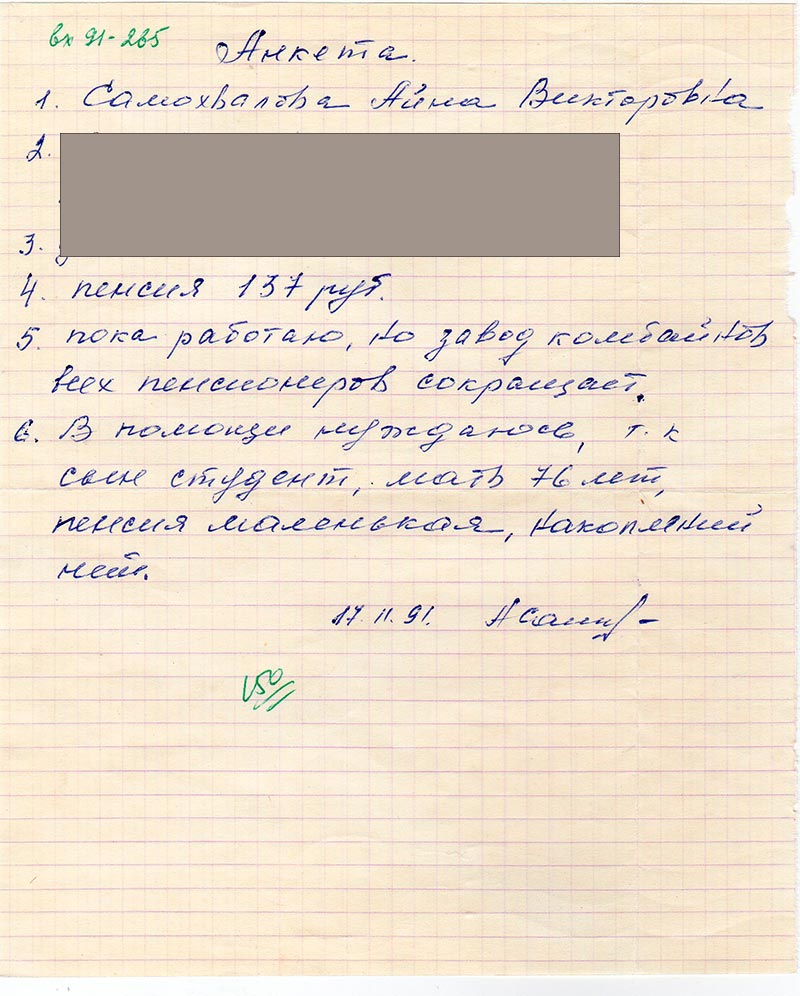 вх 91-265
Анкета.
1. Самохвалова Айна Викторовна
2.
3.
4. пенсия 137 руб.
5. пока работаю, но завод комбайнов
всех пенсионеров сокращает.
6. В помощи нуждаюсь, т.к
сын студент, мать 76 лет,
пенсия маленькая, накоплений
нет.
17.11.91.
150